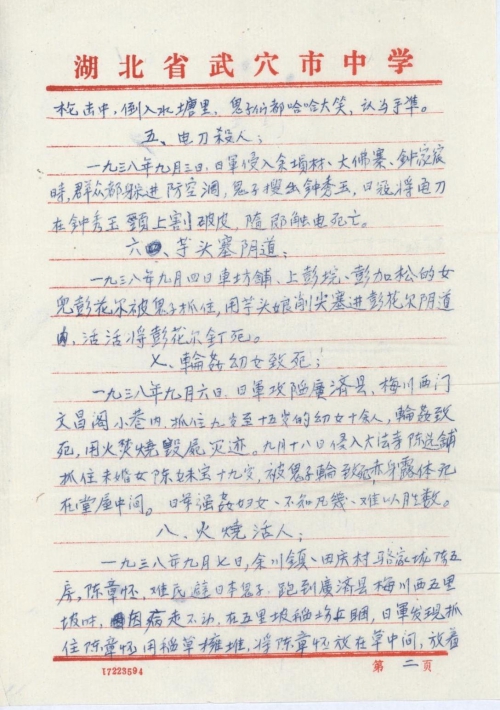 湖北省武穴市中学
枪击中，倒入水塘里，鬼子们都哈哈大笑，认为手準。
五、电刀殺人；
一九三八年九月三日，日軍侵入余埧林、大佛寨、鈡家宸
時，群众都躲进防空洞，鬼子搜出鈡秀玉，日寇将电刀
在鈡秀玉頸上割破皮，随即触电死亡。
六、芋头塞阴道；
一九三八年九月四日車坊舖、上彭垸、彭加松的女
兒彭花尔被鬼子抓住，用芋头娘削尖塞进彭花尔阴道
内，活活将彭花尔釘死。
七、輪姦幼女致死；
一九三八年九月六日，日軍攻陷廣济县、梅川西门
文昌阁小巷内，抓住九岁至十五岁的幼女十余人，輪姦致
死，用火焚燒毀屍灭迹。九月十八日侵入大法寺陈选舖
抓住未婚女陈妹宝十九岁，被鬼子輪致死，赤身露体死
在堂屋中间。日军强姦妇女、不知凡幾、难以胜数。
八、火燒活人；
一九三八年九月七日，余川鎮、田庆村駱家垅陈五
房，陈章怀，难民避日本鬼子，跑到廣济县梅川西五里
坡时，因病走不动，在五里坡稲場上睏，日軍发现抓
住陈章怀用稲草擁堆，将陈章怀放在草中间，放着
17223594
第二页